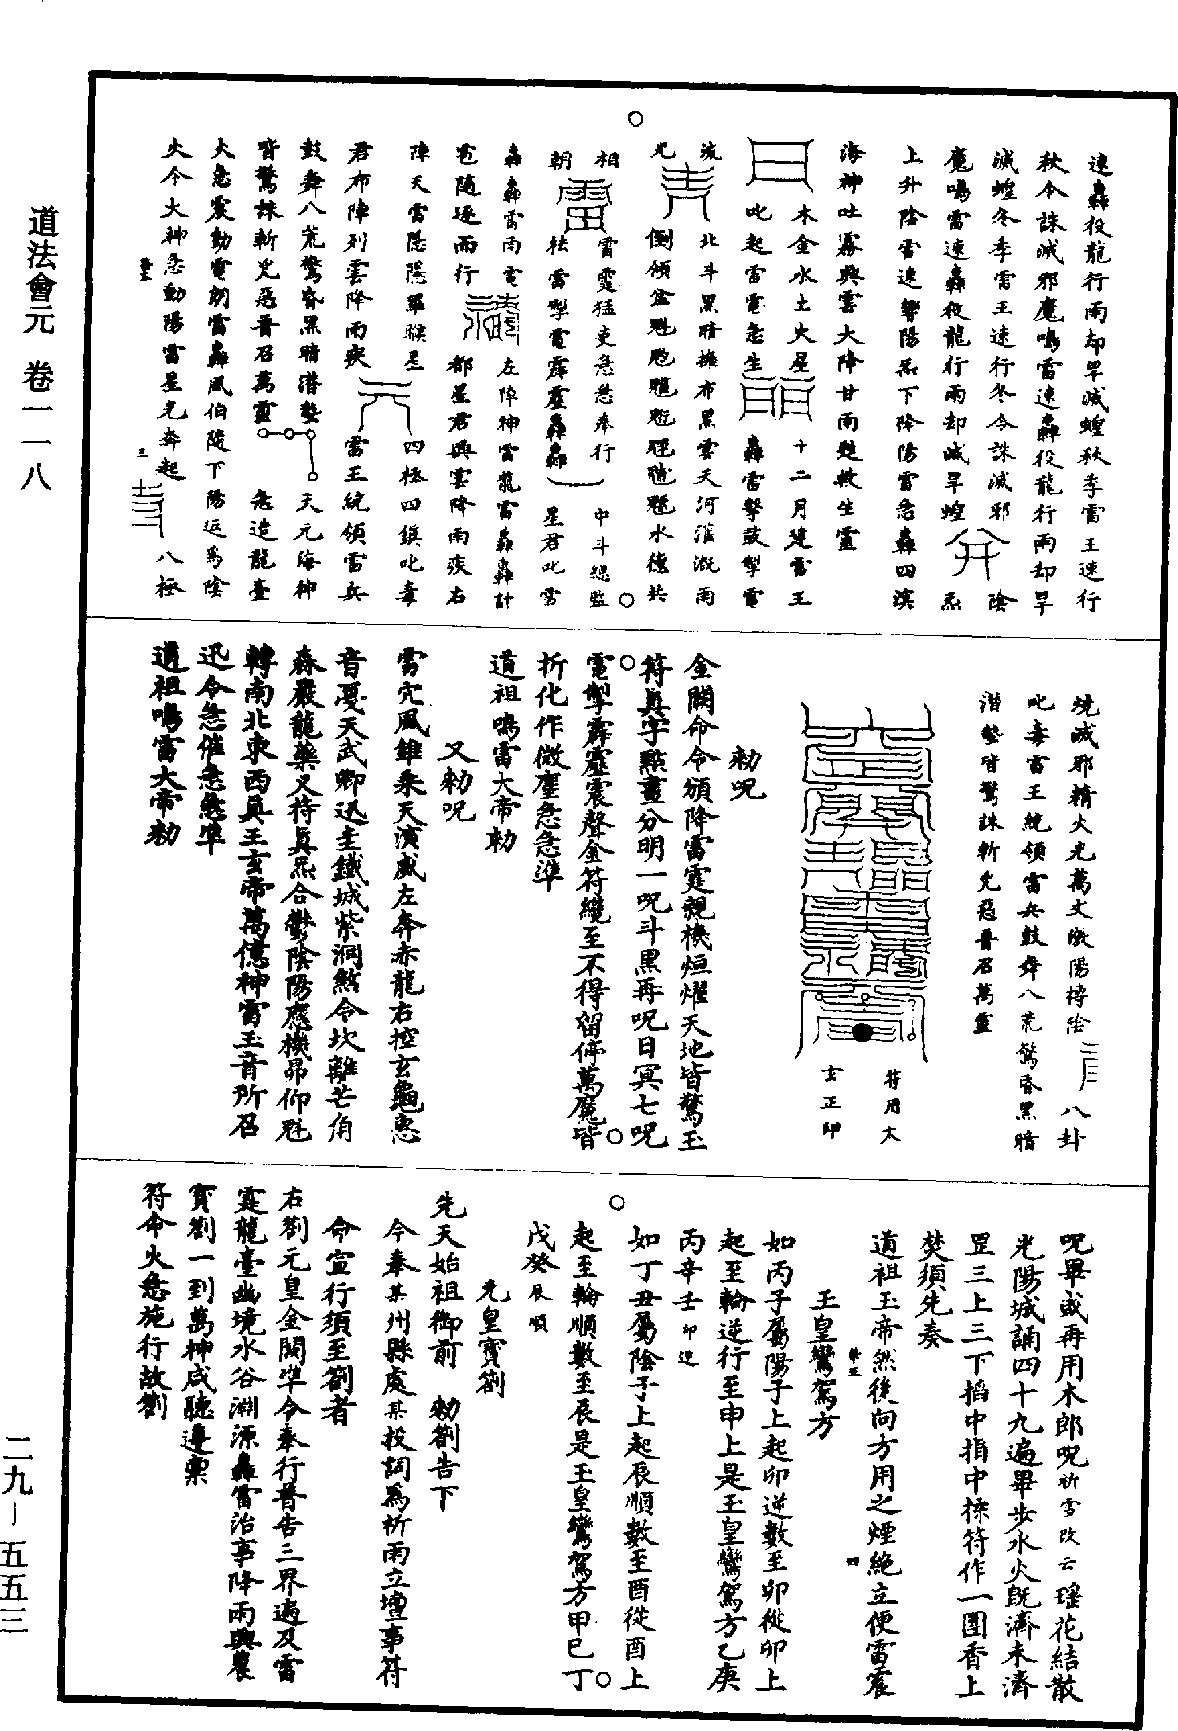 道法會元 卷一一八
速轟役龍行雨却旱滅蝗秋季雷王速行
秋令誅滅邪魔鳴雷速轟役龍行雨却旱
滅蝗冬季雷王速行冬令誅滅邪 陰
魔鳴雷速轟役龍行雨却滅旱蝗 炁
上升陰雷速響陽炁下降陽雷急轟四溟
海神吐霧興雲大降甘雨題救生靈
木金水土火星 十二月建雷王
叱起雷電急生 轟雷擊鼓掣電
流 北斗黑暗擁布黑雲天河灌溉雨
光 倒傾盆魁𩲃䰢魓䰨魒水德共
相 雷霆猛吏急急奉行 中斗總監
朝 祛雷掣電霹靂轟轟 星君叱雷
轟轟雷雨電 左陣神雷龍雷轟轟計
雹隨逐雨行 都星君興雲降雨疾右
陣天雷隱隱羅猴星 四極四鎮叱毒
君布陣列雲降雨疾 雷王統領雷兵
鼓舞八荒驚昏黑暗潛蟄 天元海神
皆驚誅斬兇惡普召萬靈 急造龍臺
火急震動電朗雷轟風伯隨下陽运爲陰
火令大神急動陽雷星光奔起 八極
燒滅邪精火光萬丈激陽搏陰 八卦
叱毒雷王統領雷兵鼓舜八荒驚昏黑暗
潛蟄皆驚誅斬兇惡普召萬靈
符用太
玄正印
勑呪
金闕命令頒降雷霆親機烜燿天地皆驚玉
符真字點畫分明一呪斗黑再呪日冥七呪
電掣霹靂震聲金符纔至不得留停萬魔皆
折化作微塵急急準
道祖鳴雷大帝勑
又勑呪
雷穴風雄乘天演威左奔赤龍右控玄龜惠
音憂天武卿迅圭鐵城紫洞敛令坎離芒角
森嚴龍藥叉持真炁合鬱陰陽應機昂仰魁
轉南北東西真王玄帝萬億神雷玉音所召
迅令急催急急準
道祖鳴雷大帝勑
呪畢或再用木郎呪祈雪改云瑶花結散
光陽城誦四十九遍畢步水火既濟未濟
罡三上三下搯中指中揉符作一團香上
焚須先奏
道祖玉帝然後向方用之煙絶立便雷震
玉皇鸞駕方
如丙子屬陽子上起卯逆數至卯從卯上
起至輪逆行至申上是玉皇鸞駕方乙庚
丙辛壬卯逆
如丁丑屬陰子上起辰順數至酉從酉上
起至輪順數至辰是玉皇鸞駕方甲巳丁
戊癸辰順
元皇寶劄
先天始祖御前 勑劄告下
今奉某州縣處某投詞爲祈雨立壇事符
命宣行須至劄者
右劄元皇金闕準令奉行普告三界過及雷
霆龍臺幽境水谷淵源轟雷治事降雨興農
寶劄一到萬神咸聽遵稟
符命火急施行故劄
二九—五五三